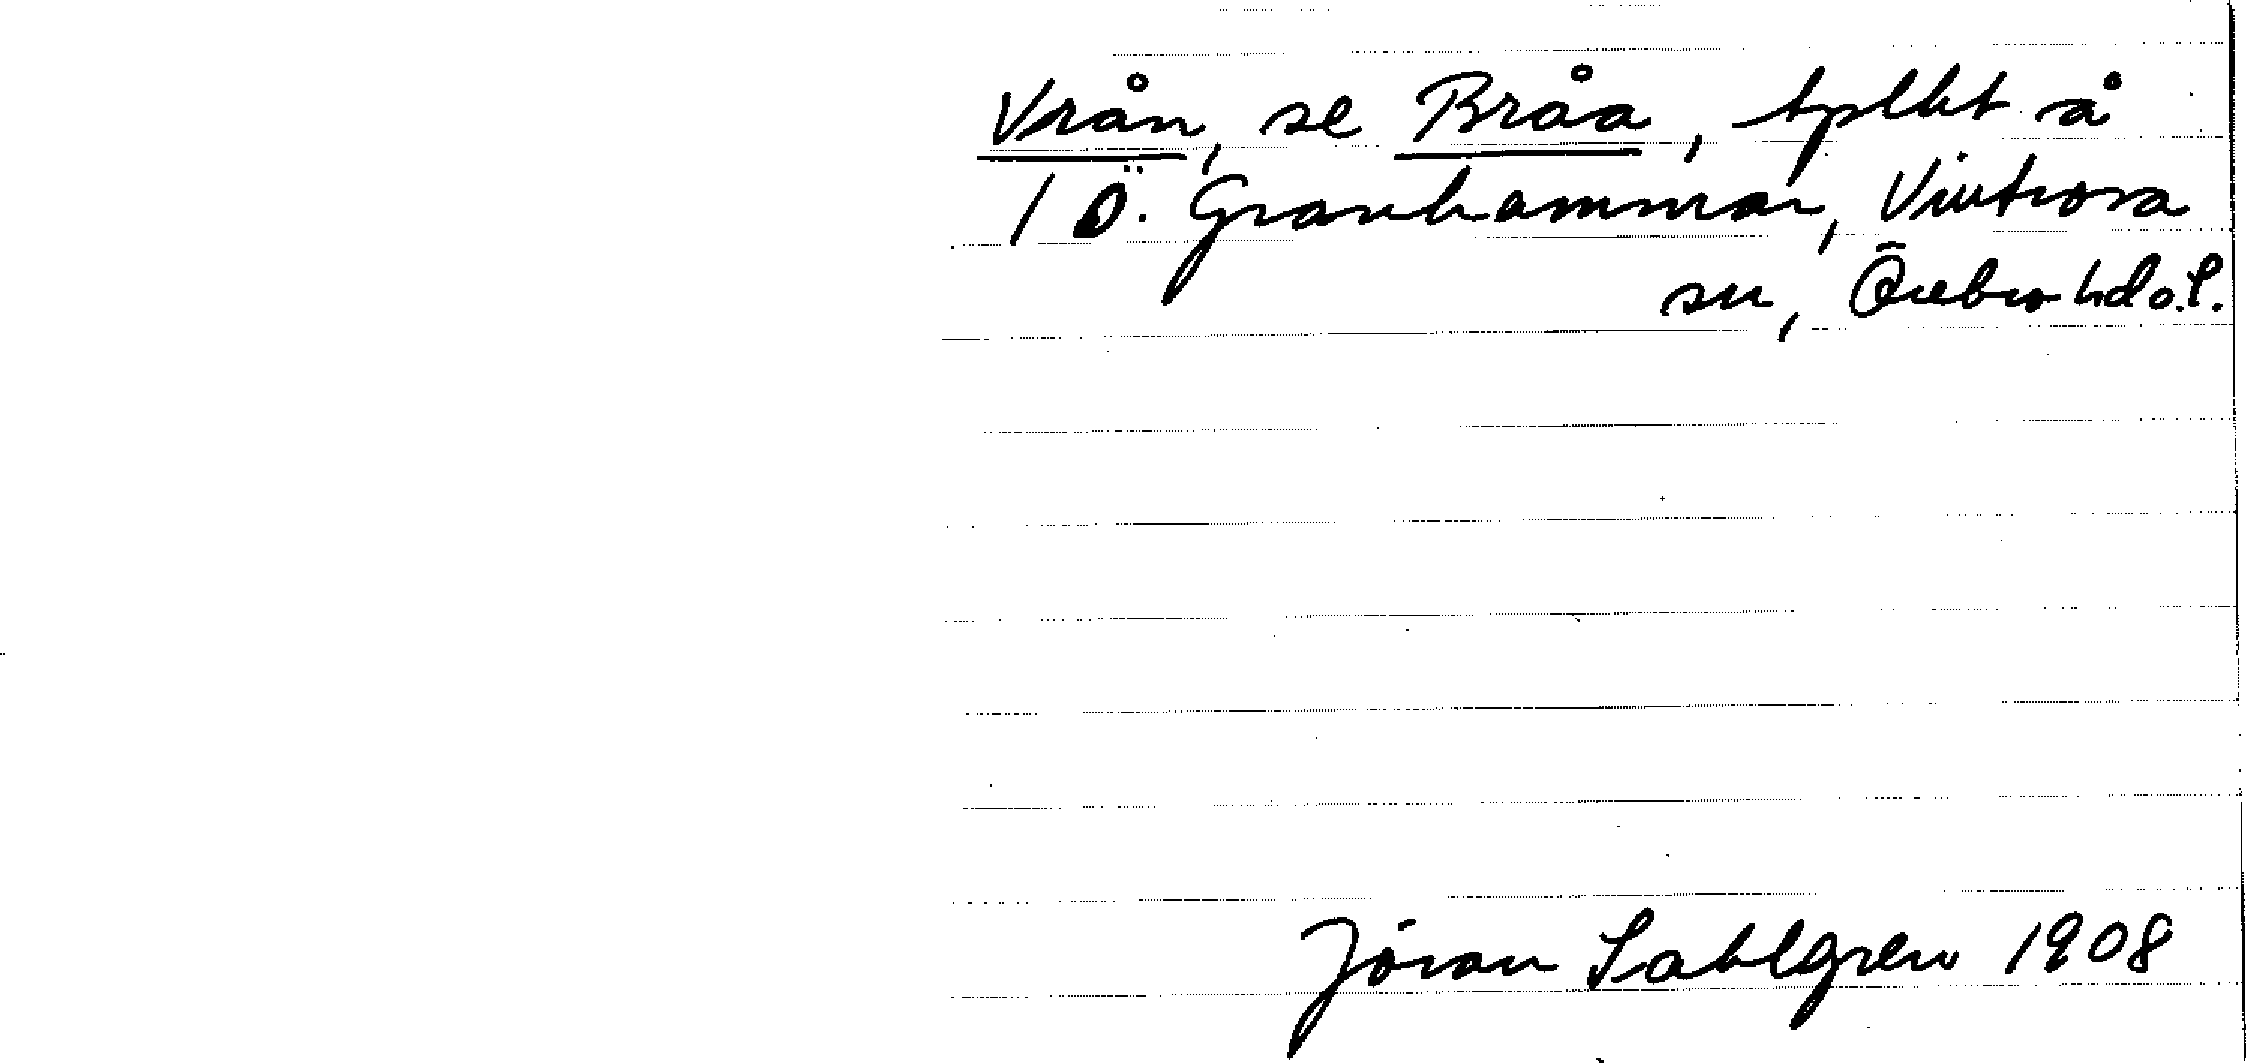 Vrån, se Bråa, tplkt å
1 Ö. Granhammar, Vintrosa
sn, Örebro hd o.l.
Jöran Sahlgren 1908